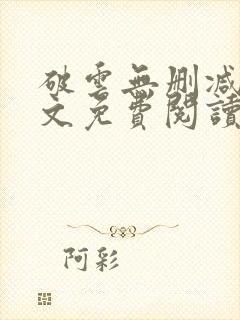 破雲無刪減
文免費閱讀
阿彩